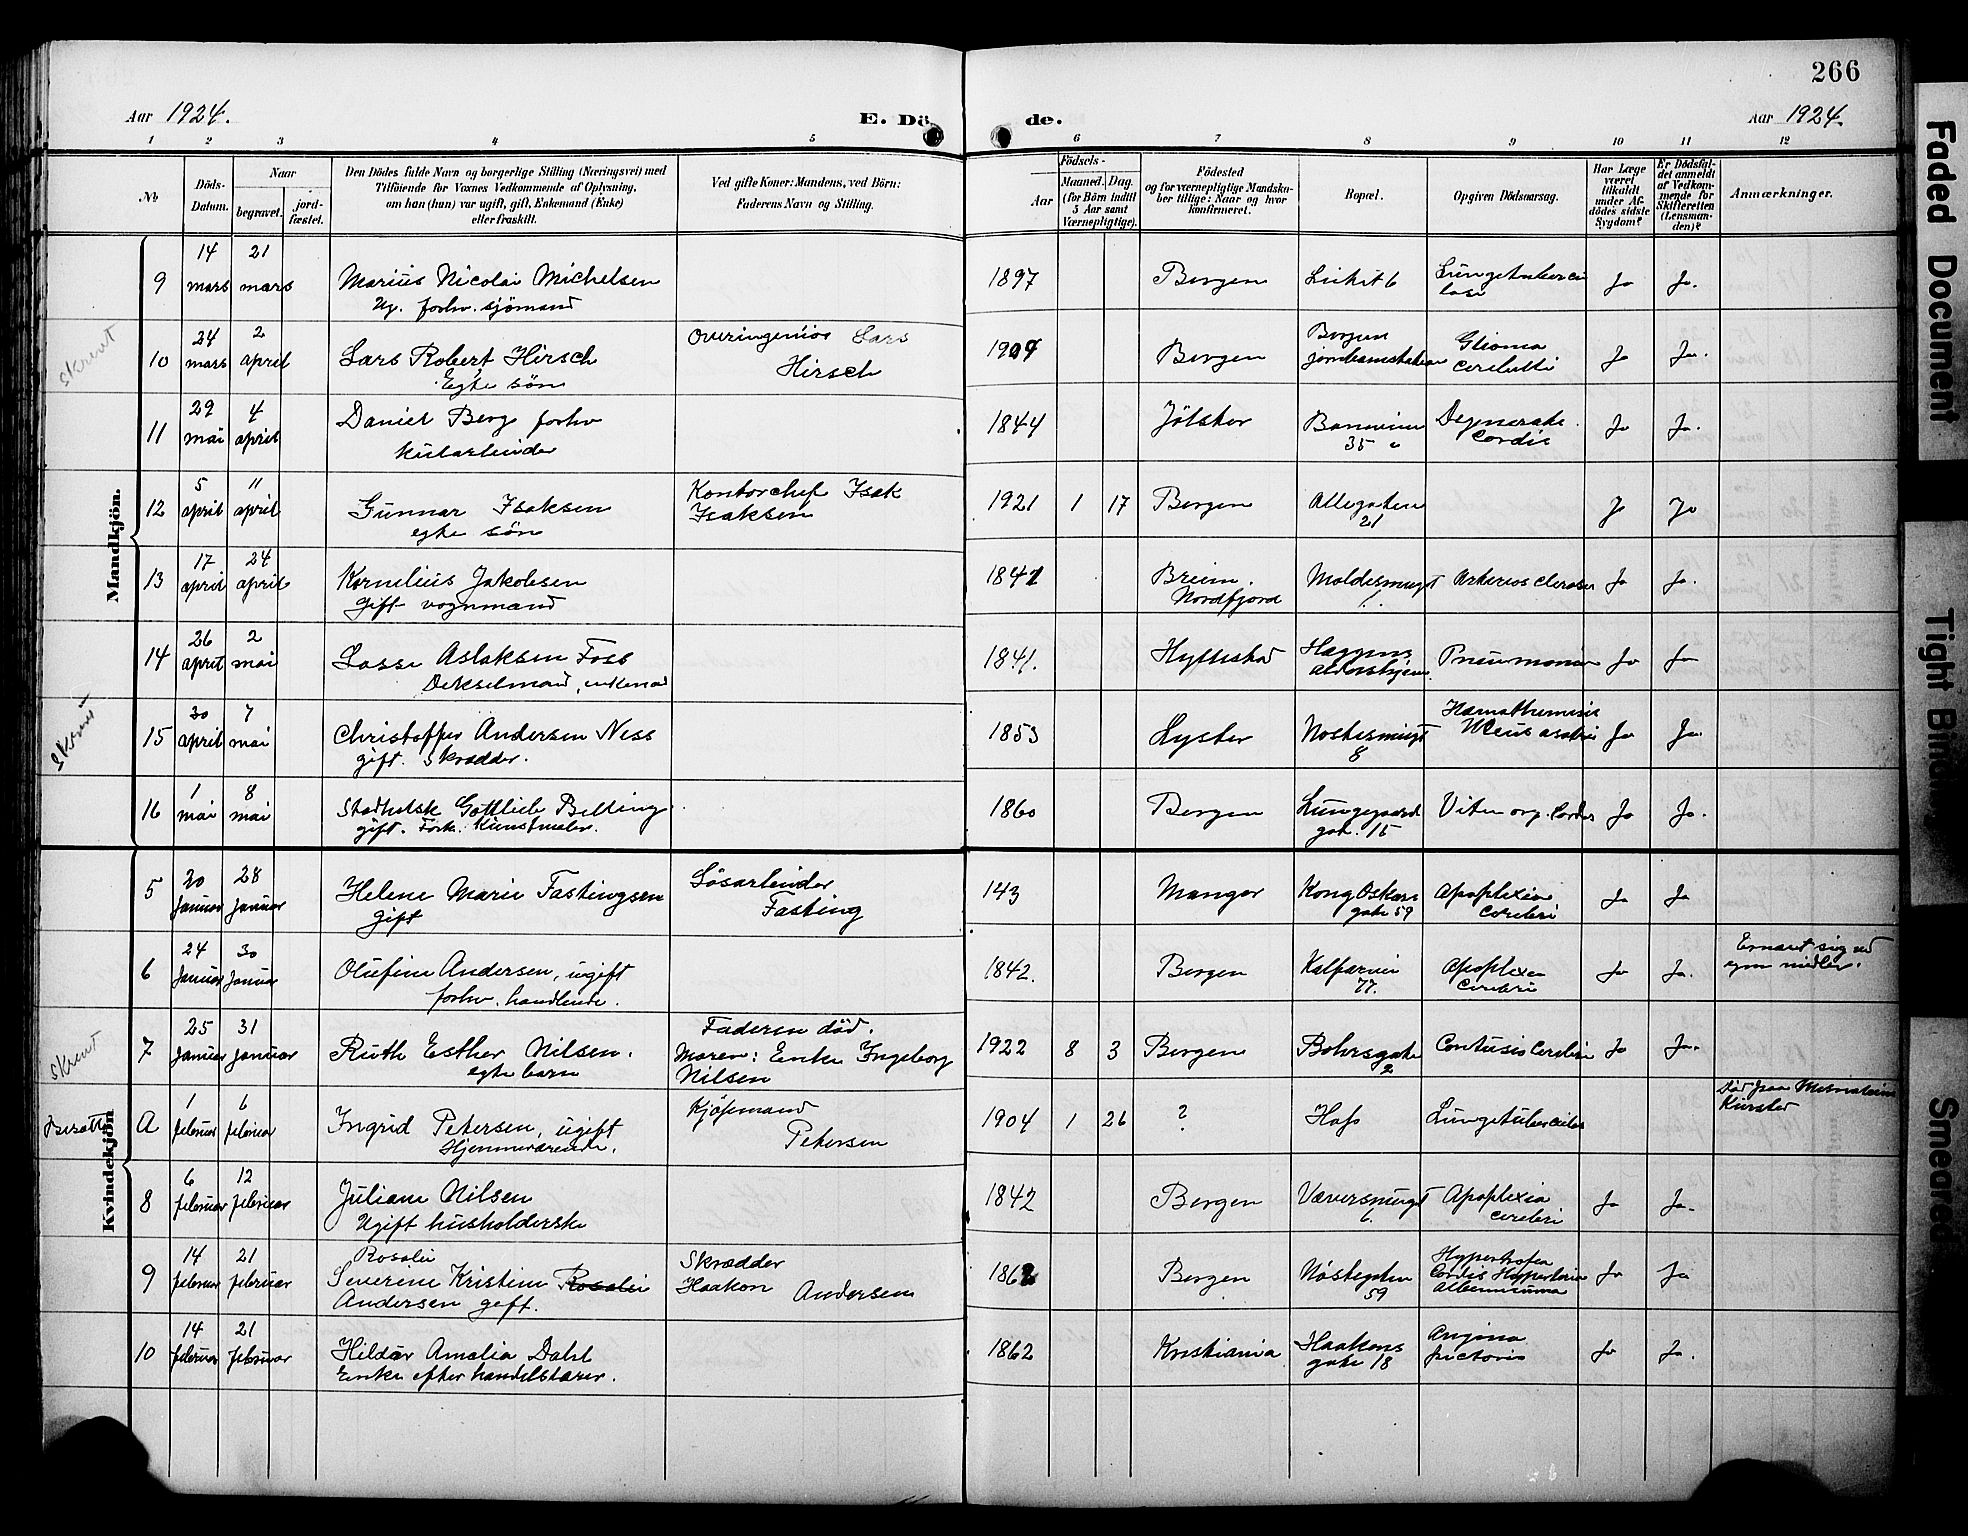 266
Aar 1924.
E. Dö
de.
Aar 1924.
1 2 3 4 5 6 7 8 9 10 11 12
No
Döds-
Datum.
Naar
begravet.
jord-
fæstet.
Den Dödes fulde Navn og borgerlige Stilling (Næringsvei) med
Tilföiende for Voxnes Vedkommende af Oplysning,
om han (hun) var ugift, gift, Enkemand (Enke)
eller fraskilt.
Ved gifte Koner: Mandens, ved Börn:
Faderens Navn og Stilling.
Födsels-
Aar
Maaned.
Dag.
(for Börn indtil
5 Aar samt
Værnepligtige).
Födested
og for værnepligtige Mandska-
ber tillige: Naar og hvor
konfirmeret.
Bopæl.
Opgiven Dödsaarsag.
Har Læge
været
tilkaldt
under Af-
dödes sidste
Sygdom?
Er Dödsfal-
det anmeldt
af Vedkom-
mende for
Skifteretten
(Lensman-
den)?
Anmærkninger.
Mandkjön.
9 14 mars 21 mars Marius Nicolai Michelsen
Ug. forhv. sjömand
1897 Bergen Ja Ja.
Skrent
10 24 mars 2 april Lars Robert Hirsch
Egte sön
Overingeniör Lars
Hirsch
1909 Bergen Bergens
jernbanestation
Glioma
cerebelli
Ja Ja.
11 29 mai 4 april Daniel Berg forhv
Jölster 1844
35 Cordis Ja Ja.
12 5 april 11 april Gunnar Isaksen
egte sön
Kontorchef Isak
Isaksen
1921 1 17 Bergen Allegaten
21
Ja Ja
13 17 april 24 april Kornelius Jakobsen
Gift vognmand
1841 Breim.
Nordfjord
Moldesmugt
Ja Ja.
14 26 april 2 mai Lasse Aslaksen Foss
1841. Hyllestad Pneumonia Ja Ja
Skrent
15 30 april 7 mai Christoffer Andersen Ness
gift. Skrædder.
1853 Lyster Nostesmugt
8
Ja Ja.
16 1 mai 8 mai Gottlieb Belling
gift. Forh. Kunstmaler.
1860 Bergen Lungegaards
gat. 15
Vitium org. Cordis Ja Ja.
Kvindekjön
5 20 Januar 28 Januar Helene Marie Fastingsen
gift
Lösarbeider
Fasting
143 Manger Kong Oskars
gate 59
Apoplexia
cerebri
Ja Ja
6 24 Januar 30 Januar Olufine Andersen, ugift
forhv. handlende.
1842. Bergen Kalfarvei
77.
Apoplexia
cerebri
Ja Ja.
Ernæret sig ved
egne midler.
Skrent
7 25 Januar 31 Januar Ruth Esther Nilsen.
egte barn
Faderen död.
Moren: Enke Ingeborg
Nilsen
1922 8 3 Bergen Bohrsgate
2
Contusio Cerebri Ja Ja.
A 1 februar 6 februar Ingrid Petersen, ugift
Hjemmeværende.
Kjöpmand
Petersen
1904 1 26 ? Hop Lungetuberculos
8 6 februar 12 februar Juliane Nilsen
Ugift husholderske
1842 Bergen Væversmugt
6.
Apoplexia
cerebri
Ja Ja.
9 14 februar 21 februar Rosalie
Severene Kristine Rosalie
Andersen gift.
Skrædder
Haakon Andersen
1862 Bergen Nöstegaten
59
Hypertrofia
Cordis
Ja Ja
10 14 februar 21 februar Hildur Amalia Dahl
Enke efter handelsbörer.
1862 Kristiania Haakons
gate 18
Angina
pectoris
Ja Ja.
Faded Document
Tight Binding
Smeared